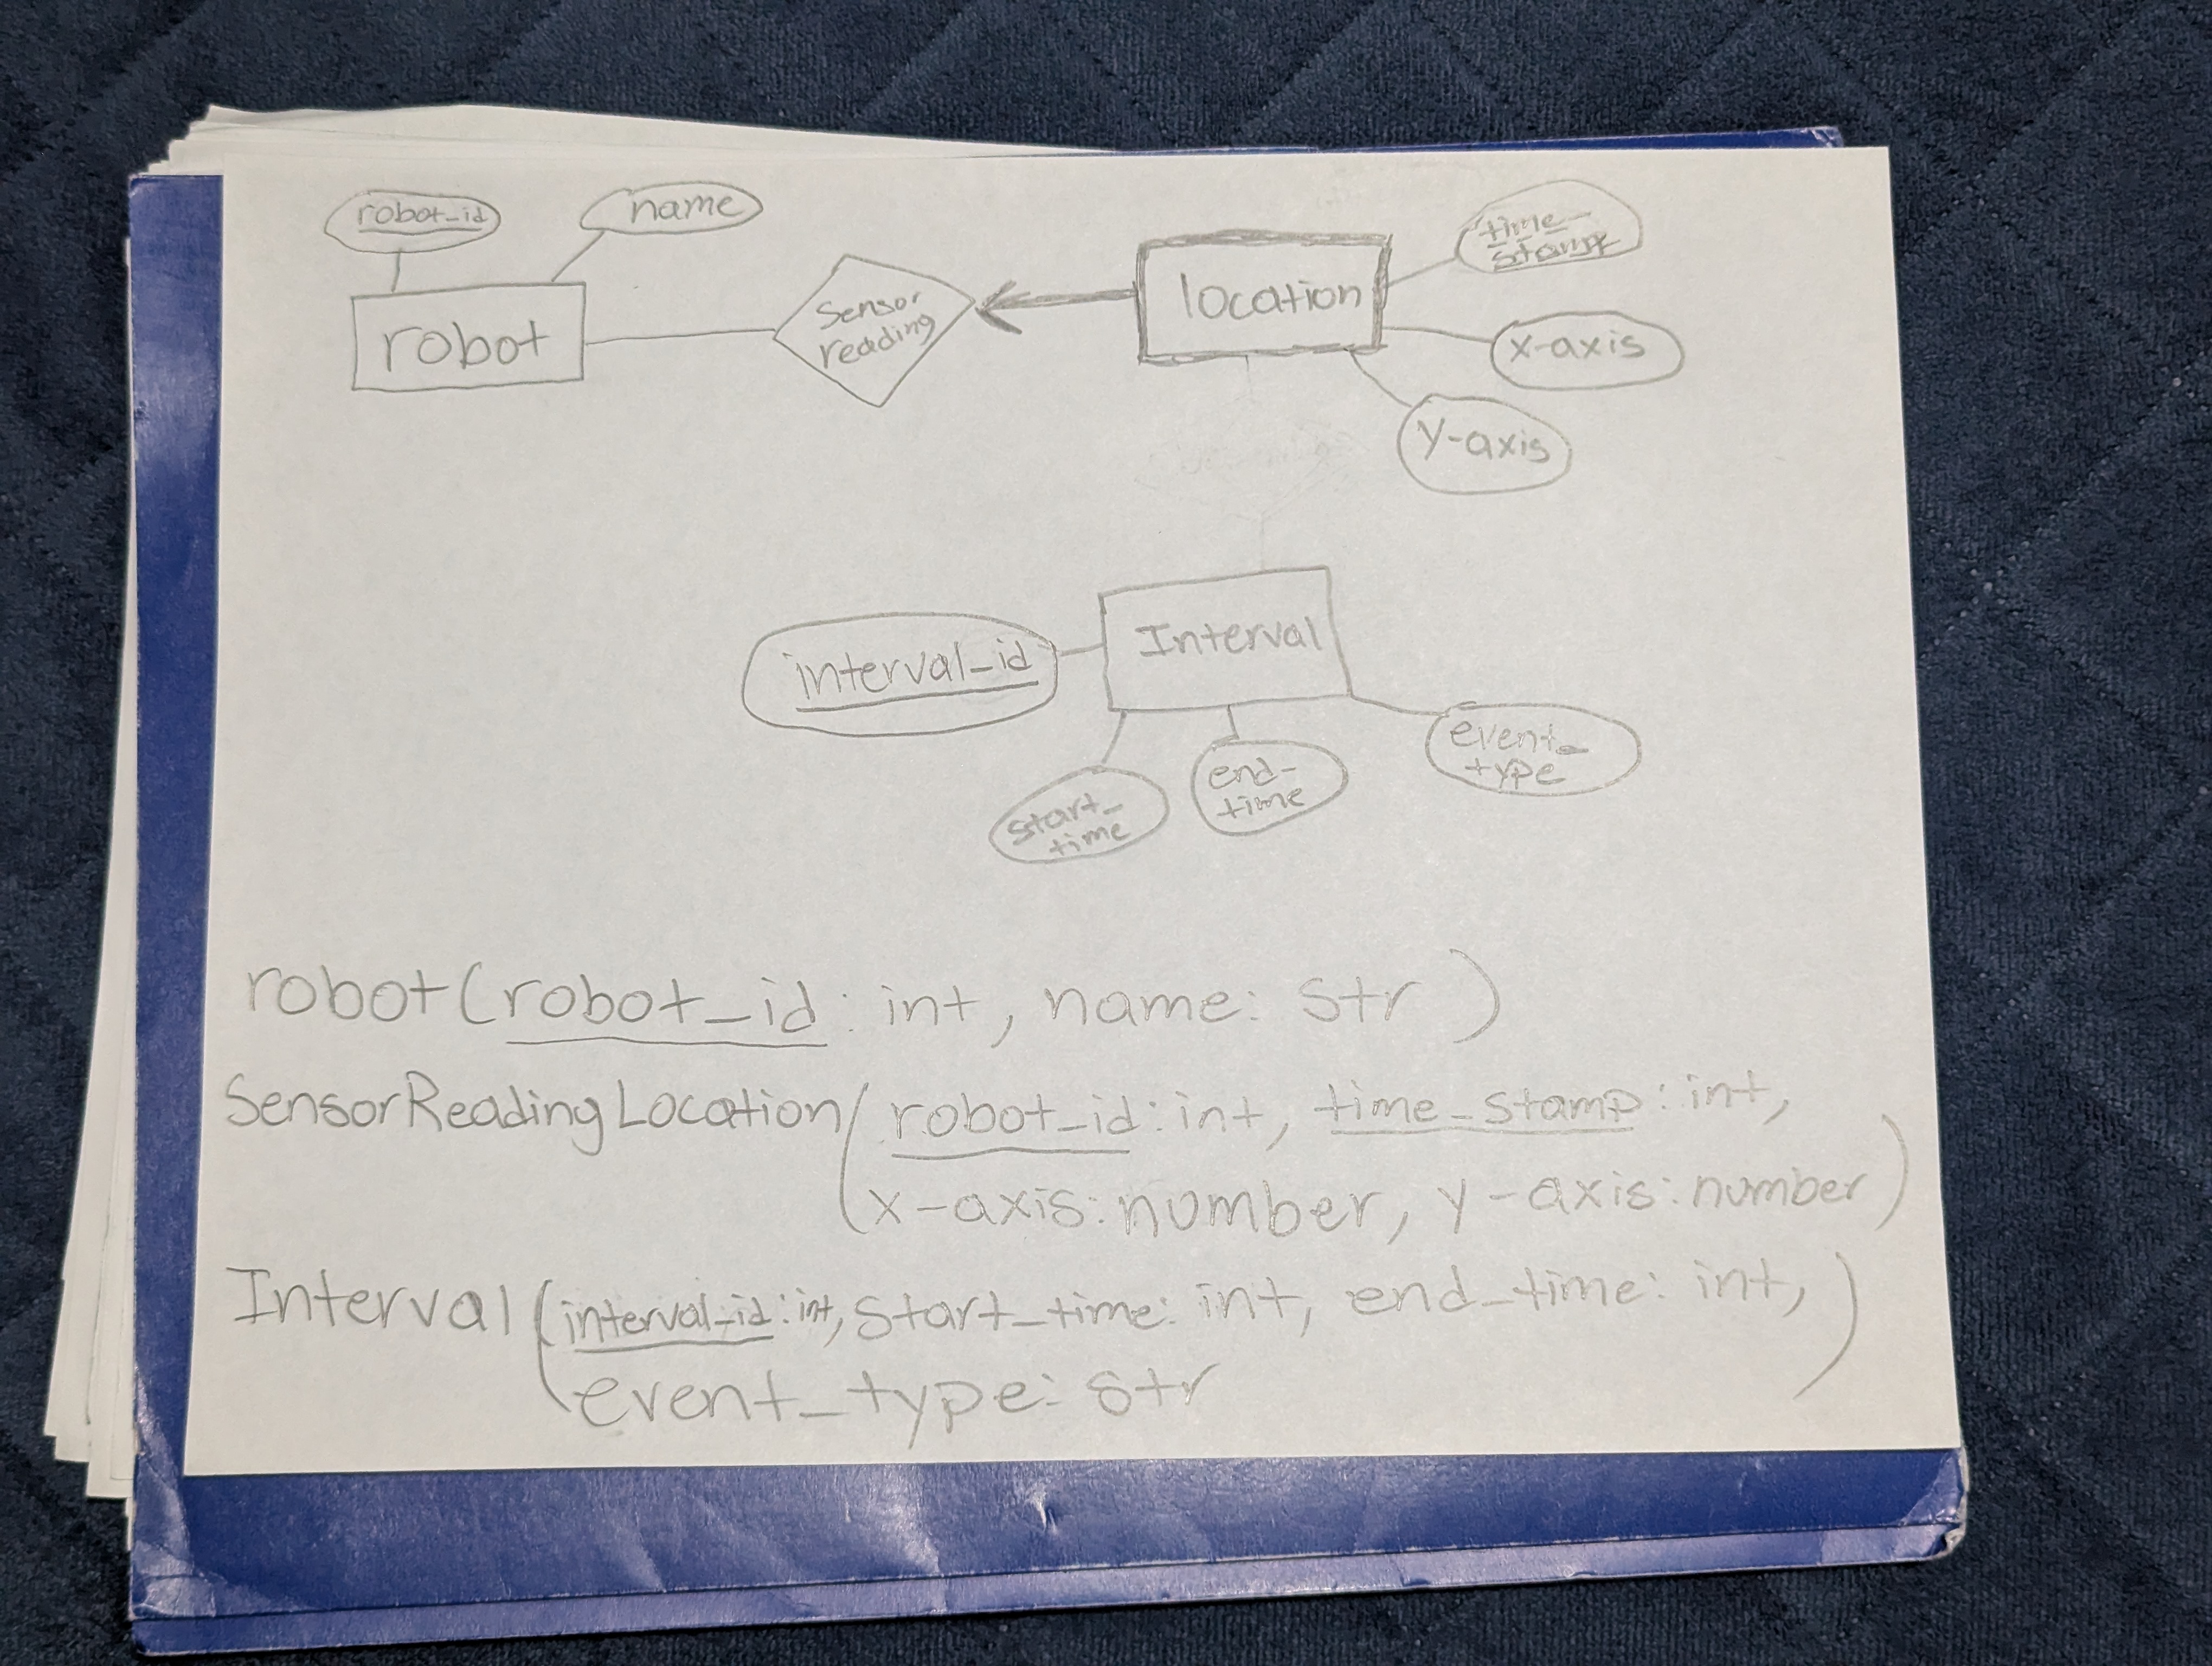 robot_id
name
time_
stamp
robot
sensor
reading
location
x-axis
y-axis
Interval
interval_id
event_
type
start_
time
end_
time
robot(robot_id: int, name: str)
SensorReadingLocation(robot_id: int, time_stamp: int,
x-axis: number, y-axis: number)
Interval(interval_id: int, start_time: int, end_time: int,
event_type: str)